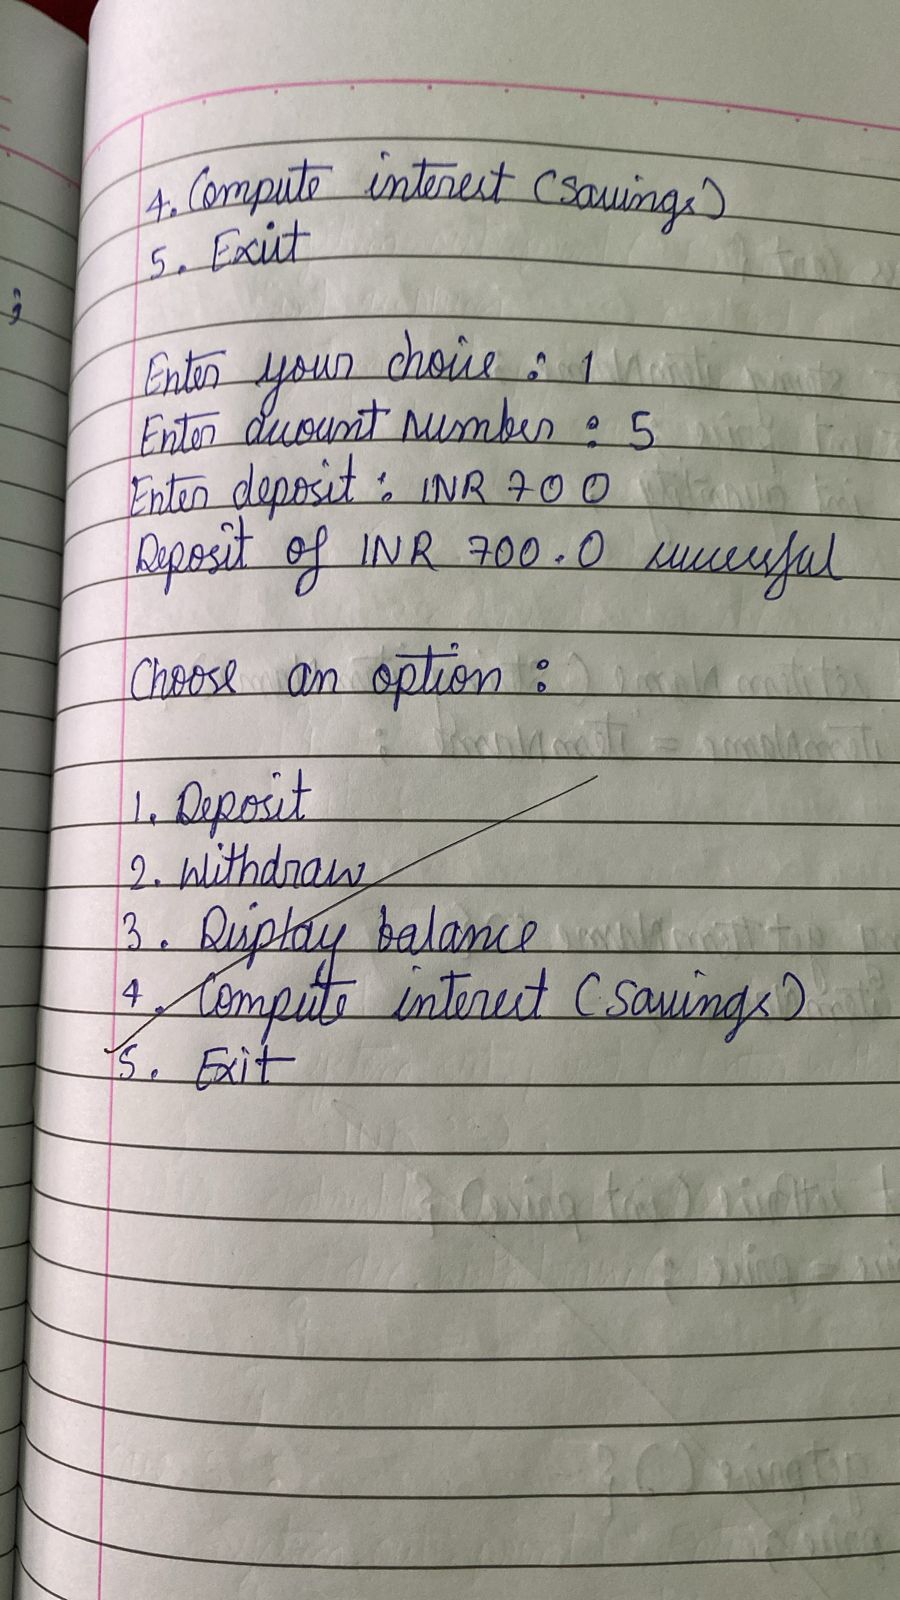 4. Compute interest (Savings)
5. Exit
;
Enter your choice : 1
Enter account number : 5
Enter deposit : INR 700
Deposit of INR 700.0 successful
Choose an option :
1. Deposit
2. Withdraw
3. Display balance
4. Compute interest (Savings)
5. Exit